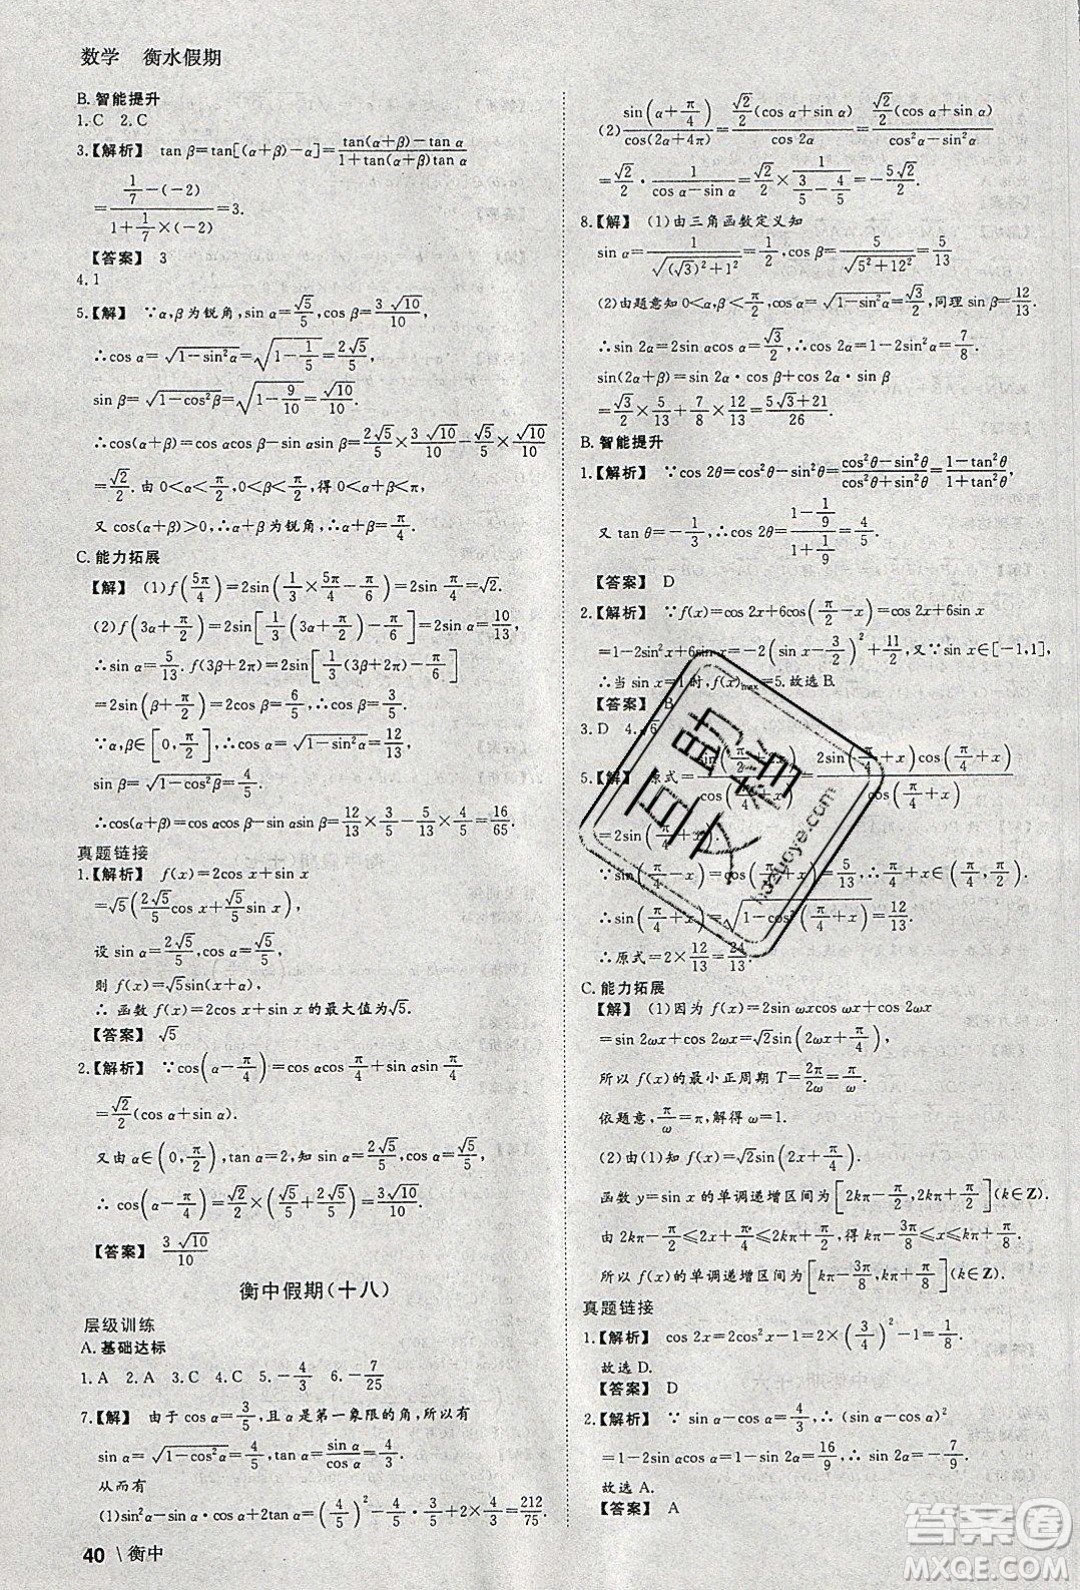 数学　衡水假期
B. 智能提升
1. C　2. C
3.【解析】　tan β=tan[(α+β)−α]=(tan(α+β)−tan α)/(1+tan(α+β)tan α)
=(1/7−(−2))/(1+1/7×(−2))=3.
【答案】　3
4. 1
5.【解】　∵α,β为锐角,sin α=√5/5,cos β=3√10/10,
∴cos α=√(1−sin²α)=√(1−1/5)=2√5/5,
sin β=√(1−cos²β)=√(1−9/10)=√10/10.
∴cos(α+β)=cos αcos β−sin αsin β=2√5/5×3√10/10−√5/5×√10/10=
√2/2. 由 0<α<π/2,0<β<π/2,∴0<α+β<π.
又 cos(α+β)>0,∴α+β为锐角,∴α+β=π/4.
C. 能力拓展
【解】　(1)f(5π/4)=2sin(1/3×5π/4−π/6)=2sin π/4=√2.
(2)f(3α+π/2)=2sin[1/3(3α+π/2)−π/6]=2sin α=10/13,
∴sin α=5/13. f(3β+2π)=2sin[1/3(3β+2π)−π/6]
=2sin(β+π/2)=2cos β=6/5,∴cos β=3/5.
∵α,β∈[0,π/2],∴cos α=√(1−sin²α)=12/13,
sin β=√(1−cos²β)=4/5.
∴cos(α+β)=cos αcos β−sin αsin β=12/13×3/5−5/13×4/5=16/65.
真题链接
1.【解析】　f(x)=2cos x+sin x
=√5(2√5/5 cos x+√5/5 sin x),
设 sin α=2√5/5,cos α=√5/5,
则 f(x)=√5sin(x+α),
∴ 函数 f(x)=2cos x+sin x 的最大值为√5.
【答案】　√5
2.【解析】　∵cos(α−π/4)=cos αcos π/4+sin αsin π/4=
√2/2(cos α+sin α).
又由 α∈(0,π/2),tan α=2知 sin α=2√5/5,cos α=√5/5,
∴cos(α−π/4)=√2/2×(√5/5+2√5/5)=3√10/10.
【答案】　3√10/10
衡中假期(十八)
层级训练
A. 基础达标
1. A　2. A　3. C　4. C　5. −4/3　6. −7/25
7.【解】　由于 cos α=3/5,且 α 是第一象限的角,所以有
sin α=√(1−cos²α)=4/5,tan α=sin α/cos α=4/3.
从而有
(1)sin²α−sin αcos α+2tan α=(4/5)²−4/5·3/5+2×4/3=212/75.
(2)sin(α+π/4)/cos(2α+4π)=(√2/2(cos α+sin α))/cos 2α=(√2/2(cos α+sin α))/(cos²α−sin²α)=
√2/2·1/(cos α−sin α)=√2/2×1/(3/5−4/5)=−5√2/2.
8.【解】　(1)由三角函数定义知
sin α=√3/√((√3)²+1²)=√3/2,cos β=5/√(5²+12²)=5/13.
(2)由题意知 0<α,β<π/2,cos α=√(1−sin²α)=1/2,同理 sin β=12/13.
∴sin 2α=2sin αcos α=√3/2,cos 2α=1−2sin²α=7/8.
sin(2α+β)=sin 2α·cos β+cos 2α·sin β
=√3/2×5/13+7/8×12/13=(5√3+21)/26.
B. 智能提升
1.【解析】　∵cos 2θ=cos²θ−sin²θ=(cos²θ−sin²θ)/(cos²θ+sin²θ)=(1−tan²θ)/(1+tan²θ),
又 tan θ=−1/3,∴cos 2θ=(1−1/9)/(1+1/9)=4/5.
【答案】　D
2.【解析】　∵f(x)=cos 2x+6cos(π/2−x)=cos 2x+6sin x
=1−2sin²x+6sin x=−2(sin x−3/2)²+11/2,又 sin x∈[−1,1],
∴当 sin x=1 时,f(x)max=5. 故选 B.
【答案】　B
3. D　4. √6
5.【解】　原式=sin(π/2+2x)/cos(π/4+x)=2sin(π/4+x)·cos(π/4+x)/cos(π/4+x)
=2sin(π/4+x).
∵sin(π/4−x)=cos(π/4+x)=5/13,且0<x<π/4,∴π/4+x∈(π/4,π/2),
∴sin(π/4+x)=√(1−cos²(π/4+x))=12/13,
∴原式=2×12/13=24/13.
C. 能力拓展
【解】　(1)因为 f(x)=2sin ωxcos ωx+cos 2ωx
=sin 2ωx+cos 2ωx=√2sin(2ωx+π/4),
所以 f(x)的最小正周期 T=2π/2ω=π/ω.
依题意,π/ω=π,解得 ω=1.
(2)由(1)知 f(x)=√2sin(2x+π/4).
函数 y=sin x 的单调递增区间为[2kπ−π/2,2kπ+π/2](k∈Z).
由 2kπ−π/2≤2x+π/4≤2kπ+π/2,得 kπ−3π/8≤x≤kπ+π/8.
所以 f(x)的单调递增区间为[kπ−3π/8,kπ+π/8](k∈Z).
真题链接
1.【解析】　cos 2x=2cos²x−1=2×(3/4)²−1=1/8.
故选 D.
【答案】　D
2.【解析】　∵ sin α−cos α=4/3,∴(sin α−cos α)²
=1−2sin αcos α=1−sin 2α=16/9,∴sin 2α=−7/9.
故选 A.
【答案】　A
40 \ 衡中
作业
精灵
h3zuoye.com
答案圈
MXQE.COM